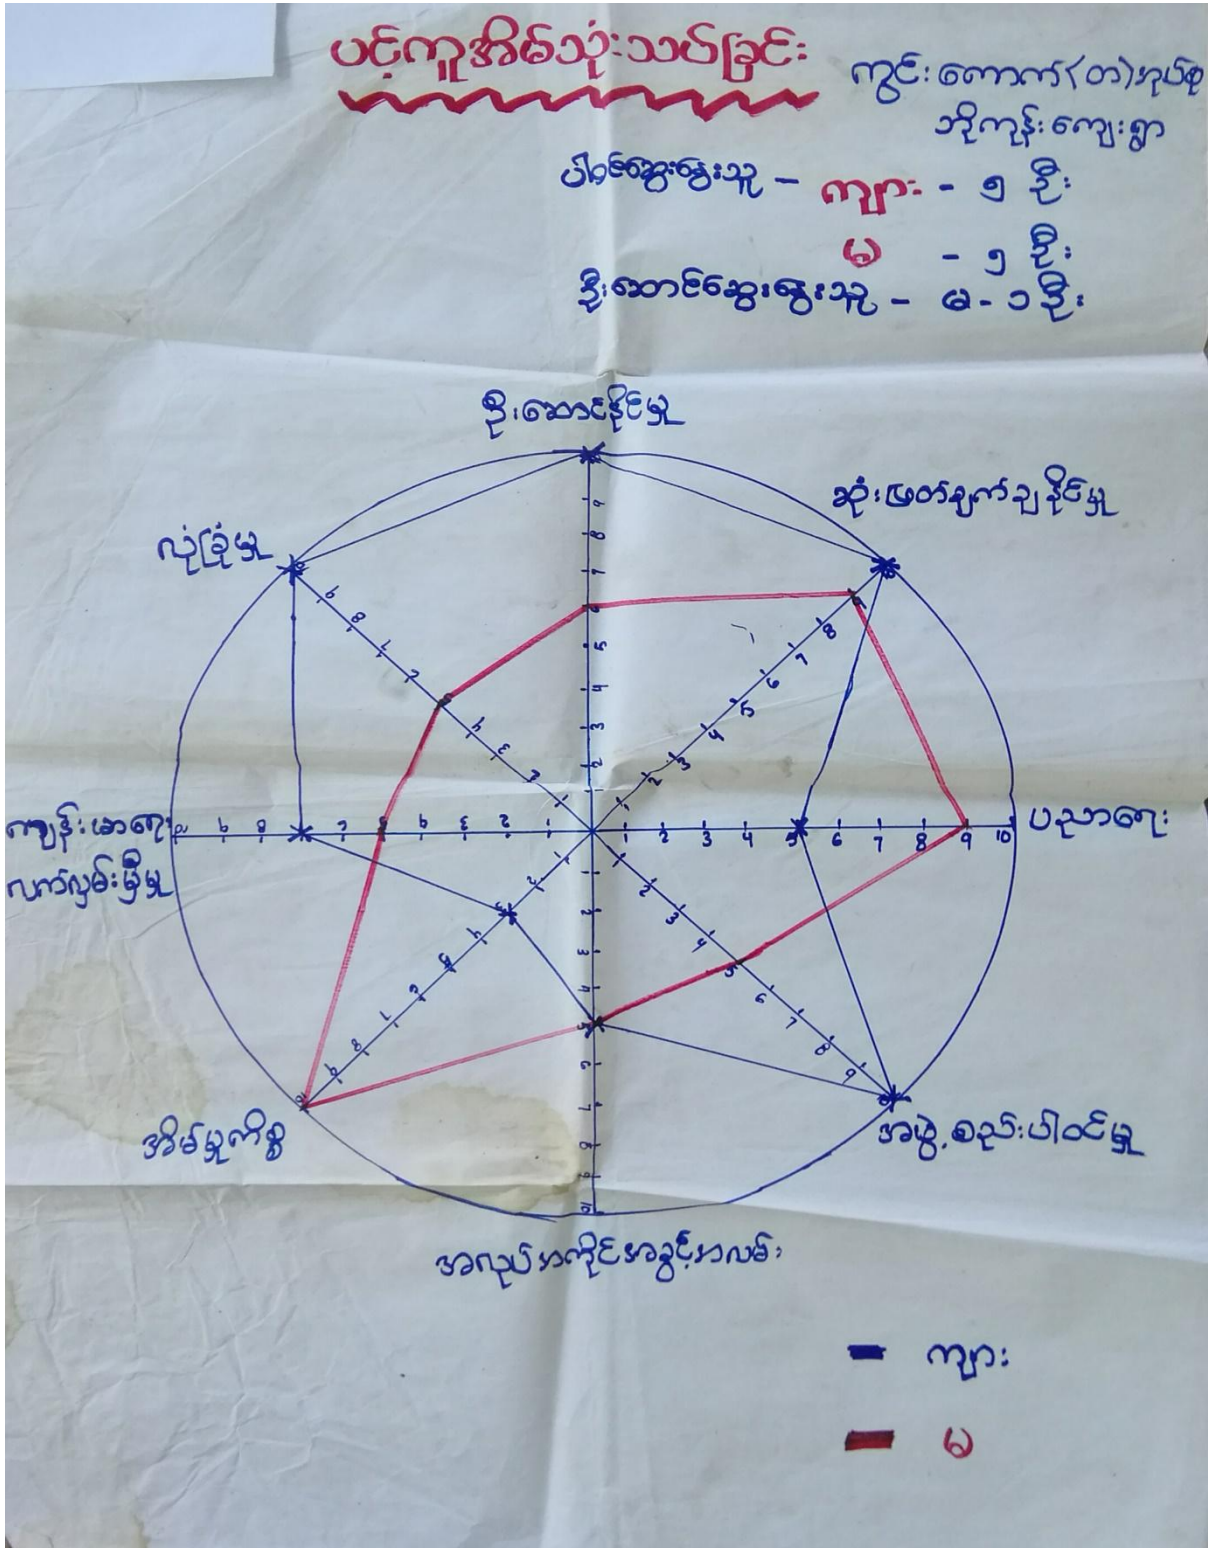 ပင့်ကူအိမ်သုံးသပ်ခြင်း
ကွင်းကောက်(တ)အုပ်စု
ဘိုကုန်းကျေးရွာ
ပါဝင်ဆွေးနွေးသူ – ကျား - ၅ ဦး
မ - ၅ ဦး
ဦးဆောင်ဆွေးနွေးသူ – မ - ၁ ဦး
ဦးဆောင်နိုင်မှု
ဆုံးဖြတ်ချက်ချနိုင်မှု
လုံခြုံမှု
ကျန်းမာရေး
လက်လှမ်းမှီမှု
ပညာရေး
1 2 3 4 5 6 7 8 9 10
အိမ်မှုကိစ္စ
အဖွဲ့စည်းပါဝင်မှု
အလုပ်အကိုင်အခွင့်အလမ်း
ကျား
မ